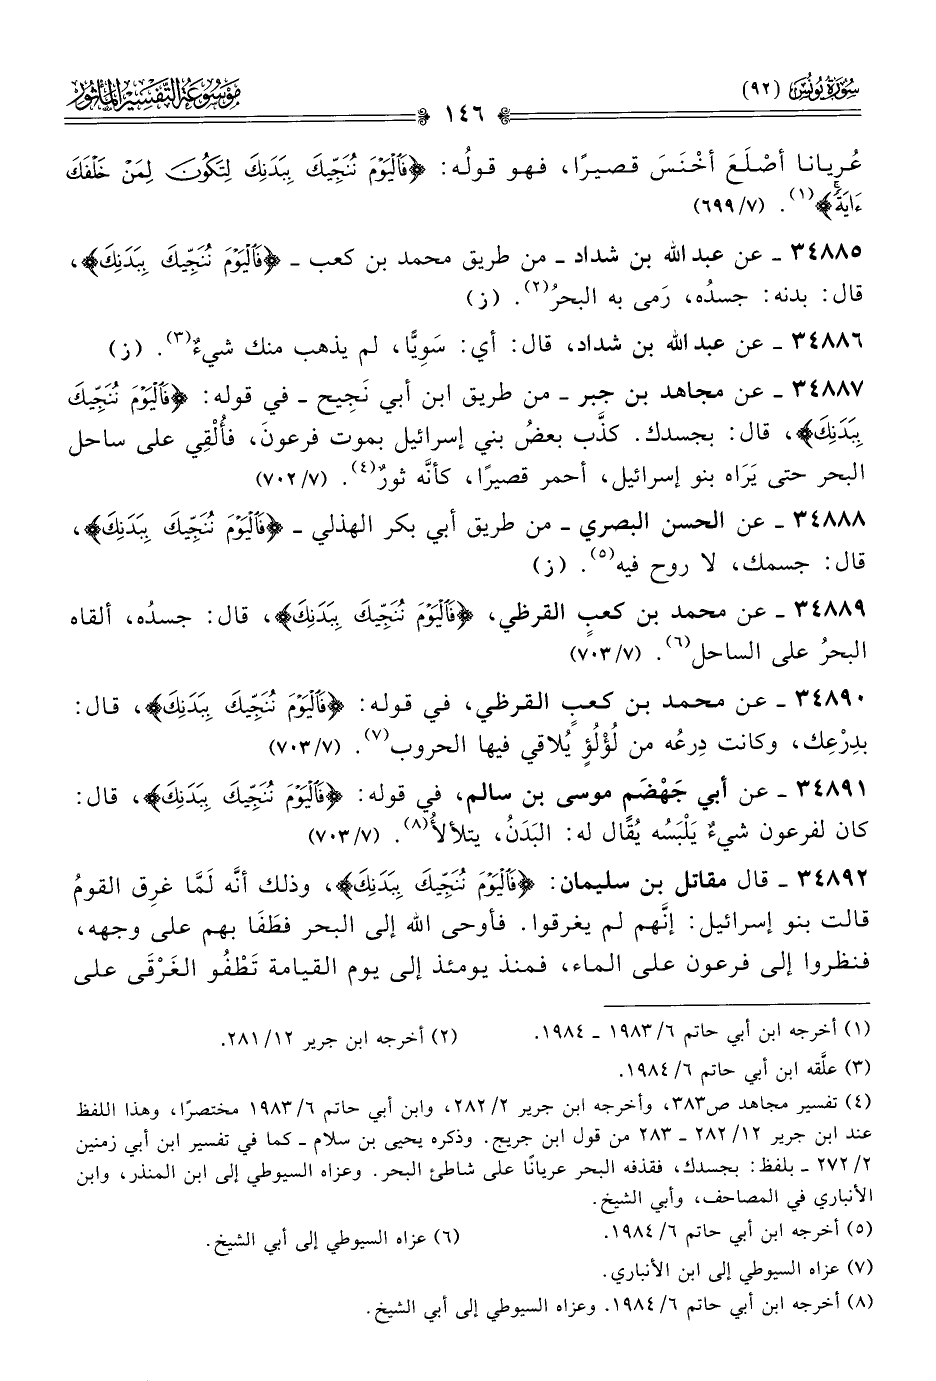 سُورَةُ يُونُسَ (٩٢)
١٤٦
مَوْسُوعَة التَّفْسِيرِ المَأْثُور
عُريانا أصْلَعَ أخْنَسَ قصيرًا، فهو قولُه: ﴿فَٱلْيَوْمَ نُنَجِّيكَ بِبَدَنِكَ لِتَكُونَ لِمَنْ خَلْفَكَ
ءَايَةً﴾(١). (٦٩٩/٧)
٣٤٨٨٥ ـ عن عبد الله بن شداد ـ من طريق محمد بن كعب ـ ﴿فَٱلْيَوْمَ نُنَجِّيكَ بِبَدَنِكَ﴾،
قال: بدنه: جسدُه، رَمى به البحرُ(٢). (ز)
٣٤٨٨٦ ـ عن عبد الله بن شداد، قال: أي: سَوِيًّا، لم يذهب منك شيءٌ(٣). (ز)
٣٤٨٨٧ ـ عن مجاهد بن جبر ـ من طريق ابن أبي نَجِيح ـ في قوله: ﴿فَٱلْيَوْمَ نُنَجِّيكَ
بِبَدَنِكَ﴾، قال: بجسدك. كذَّب بعضُ بني إسرائيل بموت فرعونَ، فأُلْقِي على ساحل
البحر حتى يَرَاه بنو إسرائيل، أحمر قصيرًا، كأنَّه ثورٌ(٤). (٧٠٢/٧)
٣٤٨٨٨ ـ عن الحسن البصري ـ من طريق أبي بكر الهذلي ـ ﴿فَٱلْيَوْمَ نُنَجِّيكَ بِبَدَنِكَ﴾،
قال: جسمك، لا روح فيه(٥). (ز)
٣٤٨٨٩ ـ عن محمد بن كعبٍ القرظي، ﴿فَٱلْيَوْمَ نُنَجِّيكَ بِبَدَنِكَ﴾، قال: جسدُه، ألقاه
البحرُ على الساحل(٦). (٧٠٣/٧)
٣٤٨٩٠ ـ عن محمد بن كعبٍ القرظي، في قوله: ﴿فَٱلْيَوْمَ نُنَجِّيكَ بِبَدَنِكَ﴾، قال:
بدِرْعِك، وكانت دِرعُه من لُؤْلُؤٍ يُلاقي فيها الحروب(٧). (٧٠٣/٧)
٣٤٨٩١ ـ عن أبي جَهْضَمٍ موسى بن سالم، في قوله: ﴿فَٱلْيَوْمَ نُنَجِّيكَ بِبَدَنِكَ﴾، قال:
كان لفرعون شيءٌ يَلْبَسُه يُقَال له: البَدَنُ، يتلألأُ(٨). (٧٠٣/٧)
٣٤٨٩٢ ـ قال مقاتل بن سليمان: ﴿فَٱلْيَوْمَ نُنَجِّيكَ بِبَدَنِكَ﴾، وذلك أنَّه لَمَّا غرِق القومُ
قالت بنو إسرائيل: إنَّهم لم يغرقوا. فأوحى الله إلى البحر فطَفَا بهم على وجهه،
فنظروا إلى فرعون على الماء، فمنذ يومئذ إلى يوم القيامة تَطْفُو الغَرْقَى على
(١) أخرجه ابن أبي حاتم ٦/ ١٩٨٣ ـ ١٩٨٤. (٢) أخرجه ابن جرير ١٢/ ٢٨١.
(٣) علَّقه ابن أبي حاتم ٦/ ١٩٨٤.
(٤) تفسير مجاهد ص٣٨٣، وأخرجه ابن جرير ٢/ ٢٨٢، وابن أبي حاتم ٦/ ١٩٨٣ مختصرًا، وهذا اللفظ
عند ابن جرير ١٢/ ٢٨٢ ـ ٢٨٣ من قول ابن جريج. وذكره يحيى بن سلام ـ كما في تفسير ابن أبي زمنين
٢/ ٢٧٢ ـ بلفظ: بجسدك، فقذفه البحر عريانًا على شاطئ البحر. وعزاه السيوطي إلى ابن المنذر، وابن
الأنباري في المصاحف، وأبي الشيخ.
(٥) أخرجه ابن أبي حاتم ٦/ ١٩٨٤. (٦) عزاه السيوطي إلى أبي الشيخ.
(٧) عزاه السيوطي إلى ابن الأنباري.
(٨) أخرجه ابن أبي حاتم ٦/ ١٩٨٤. وعزاه السيوطي إلى أبي الشيخ.